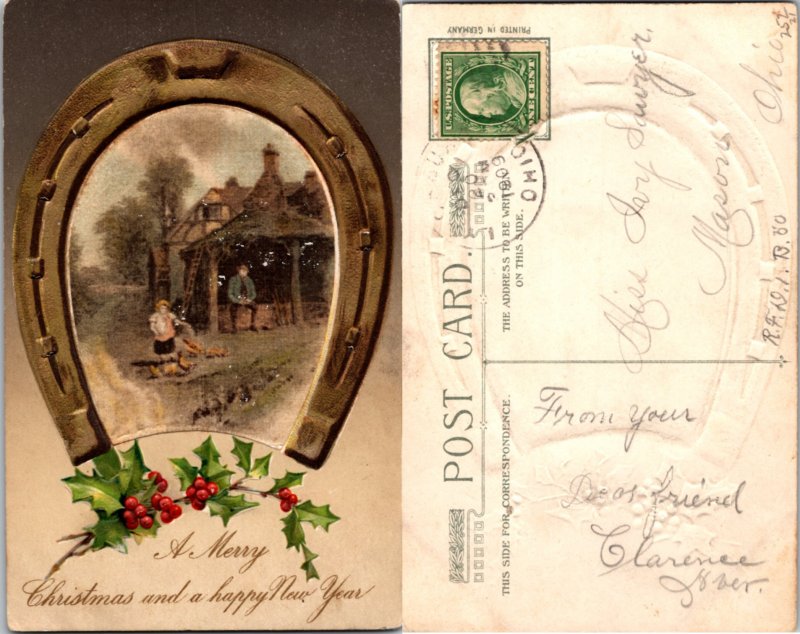 A Merry
Christmas and a happy New Year
PRINTED IN GERMANY
U.S. POSTAGE
1 CENT
OHIO
1909
POST CARD.
THE ADDRESS TO BE WRITTEN
ON THIS SIDE.
THIS SIDE FOR CORRESPONDENCE.
Miss Ivy Sawyer.
Mason
Ohio
From your
Dear Friend
Clarence